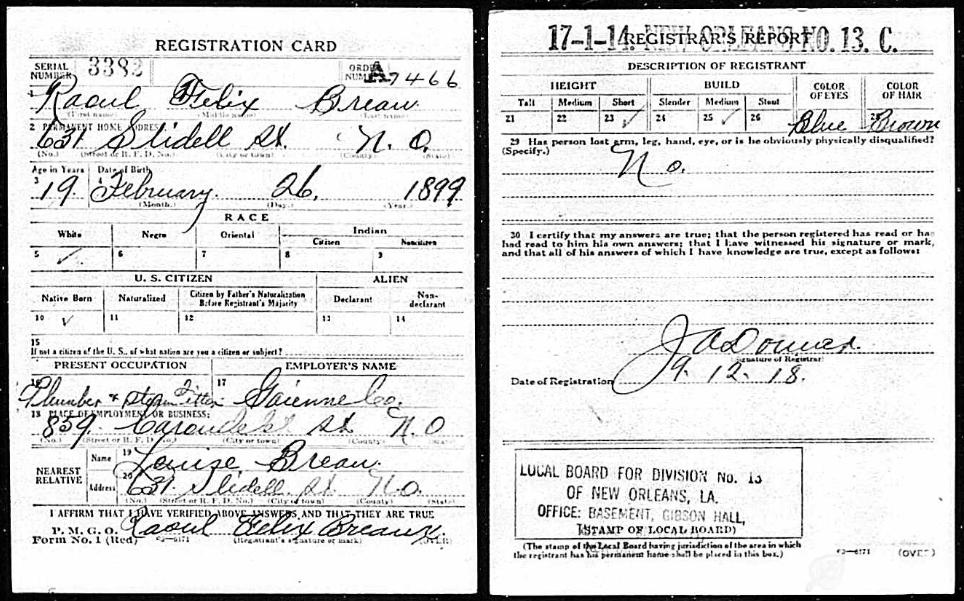 REGISTRATION CARD
SERIAL NUMBER 3382 ORDER NUMBER A7466
1 Raoul Felix Breau
(First name) (Middle name) (Last name)
2 PERMANENT HOME ADDRESS:
631 Slidell St. N. O.
(No.) (Street or R. F. D. No.) (City or town) (County) (State)
Age in Years Date of Birth
3 19 4 February 26. 1899
(Month.) (Day.) (Year.)
RACE
White Negro Oriental Indian
Citizen Noncitizen
5 ✓ 6 7 8 9
U. S. CITIZEN ALIEN
Native Born Naturalized Citizen by Father's Naturalization Before Registrant's Majority Declarant Non-declarant
10 ✓ 11 12 13 14
15
If not a citizen of the U. S., of what nation are you a citizen or subject?
PRESENT OCCUPATION EMPLOYER'S NAME
16 Plumber & Steam Fitter 17 Gaienne Co.
18 PLACE OF EMPLOYMENT OR BUSINESS:
859 Carondelet St N O
(No.) (Street or R. F. D. No.) (City or town) (County) (State)
NEAREST RELATIVE
Name 19 Louise Breau
Address 20 631 Slidell St N.O.
(No.) (Street or R. F. D. No.) (City or town) (County) (State)
I AFFIRM THAT I HAVE VERIFIED ABOVE ANSWERS AND THAT THEY ARE TRUE
P. M. G. O.
Form No. 1 (Red) c3—6171 Raoul Felix Breaux
(Registrant's signature or mark) (OVER)
17-1-14. NEW ORLEANS NO. 13. C.
REGISTRAR'S REPORT
DESCRIPTION OF REGISTRANT
HEIGHT BUILD COLOR OF EYES COLOR OF HAIR
Tall Medium Short Slender Medium Stout
21 22 23 ✓ 24 25 ✓ 26 27 Blue 28 Brown
29 Has person lost arm, leg, hand, eye, or is he obviously physically disqualified?
(Specify.) No.
30 I certify that my answers are true; that the person registered has read or has
had read to him his own answers; that I have witnessed his signature or mark,
and that all of his answers of which I have knowledge are true, except as follows:
(Signature of Registrar)
Date of Registration 9. 12. 18.
LOCAL BOARD FOR DIVISION No. 13
OF NEW ORLEANS, LA.
OFFICE: BASEMENT, GIBSON HALL,
(STAMP OF LOCAL BOARD)
(The stamp of the Local Board having jurisdiction of the area in which
the registrant has his permanent home shall be placed in this box.)
c3—6171 (OVER)